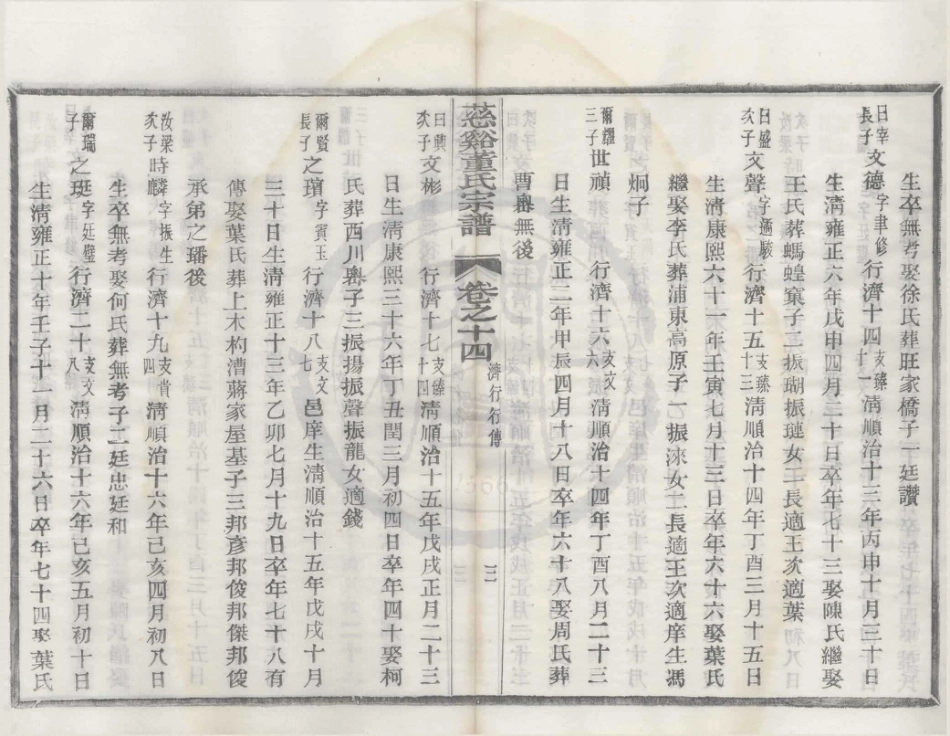 生卒無考娶徐氏葬旺家橋子一廷讚
日宰長子文德字聿修行濟十四支臻十一清順治十三年丙申十月三十日
生清雍正六年戊申四月二十日卒年七十三娶陳氏繼娶
王氏葬螞蝗窠子二振瑚振璉女二長適王次適葉
日盛次子文聲字行濟十五支臻十三清順治十四年丁酉三月十五日
生清康熙六十一年壬寅七月十三日卒年六十六娶葉氏
繼娶李氏葬浦東高原子一振淶女二長適王次適庠生馮
炯子
爾耀三子世禎行濟十六支文六清順治十四年丁酉八月二十三
日生清雍正二年甲辰四月十八日卒年六十八娶周氏葬
曹嶴無後
慈谿董氏宗譜 卷之十四 濟行行傳 三
日興次子文彬行濟十七支臻十四清順治十五年戊戌正月二十三
日生清康熙三十六年丁丑閏三月初四日卒年四十娶柯
氏葬西川嶴子三振揚振聲振龍女適錢
爾賢長子之字賓玉行濟十八支文七邑庠生清順治十五年戊戌十月
三十日生清雍正十三年乙卯七月十九日卒年七十八有
傳娶葉氏葬上木杓漕蔣家屋基子三邦彥邦俊邦傑邦俊
承第之璠後
汝梁次子時麟字振生行濟十九支肯四清順治十六年己亥四月初八日
生卒無考娶何氏葬無考子二廷忠廷和
爾瑞子之珽字廷璧行濟二十支文八清順治十六年己亥五月初十日
生清雍正十年壬子十一月二十六日卒年七十四娶葉氏